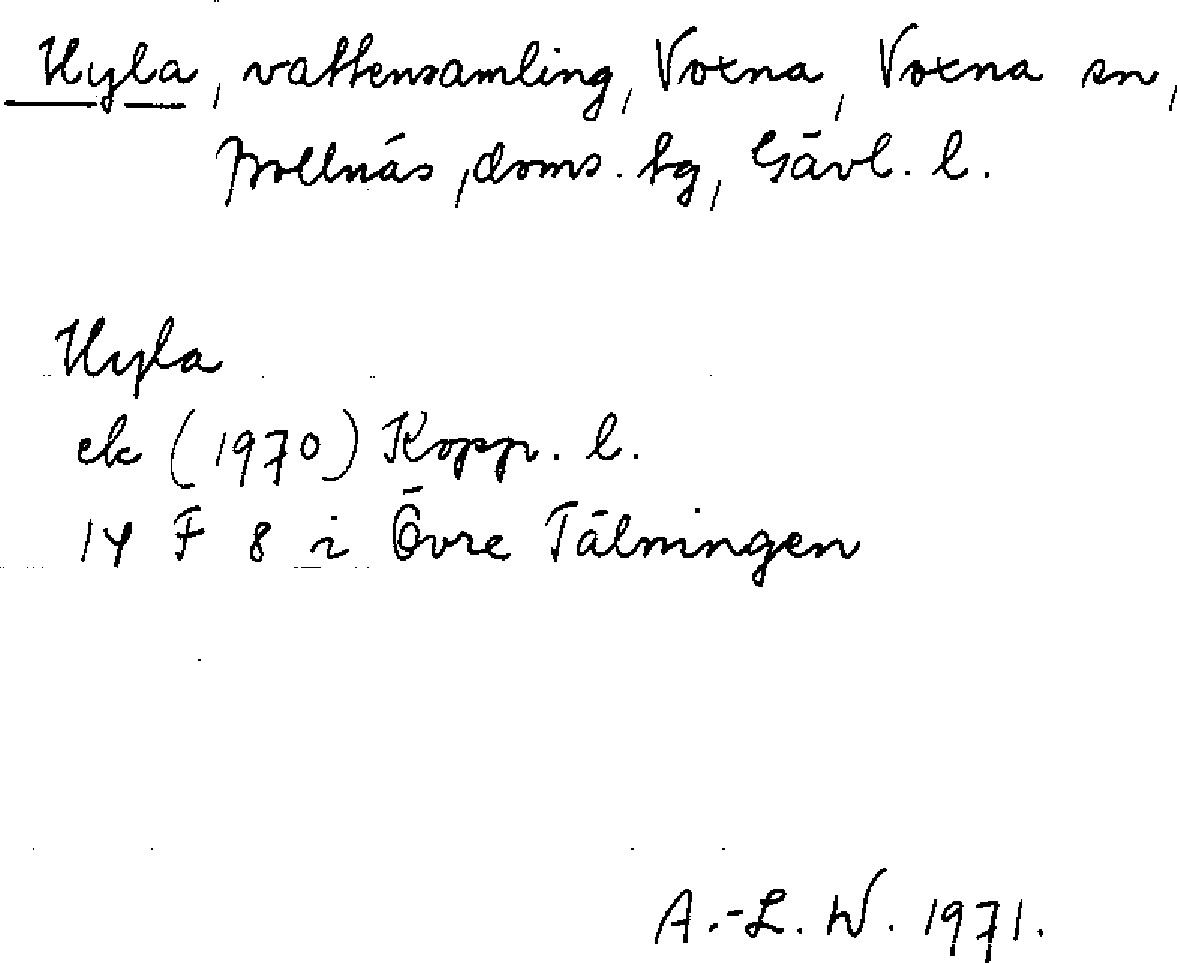 Hyla, vattensamling, Voxna, Voxna sn,
Bollnäs, doms. tg, Gävl. l.
Hyla
ek (1970) Kopp. l.
14 F 8 i Övre Tälningen
A.-L. W. 1971.